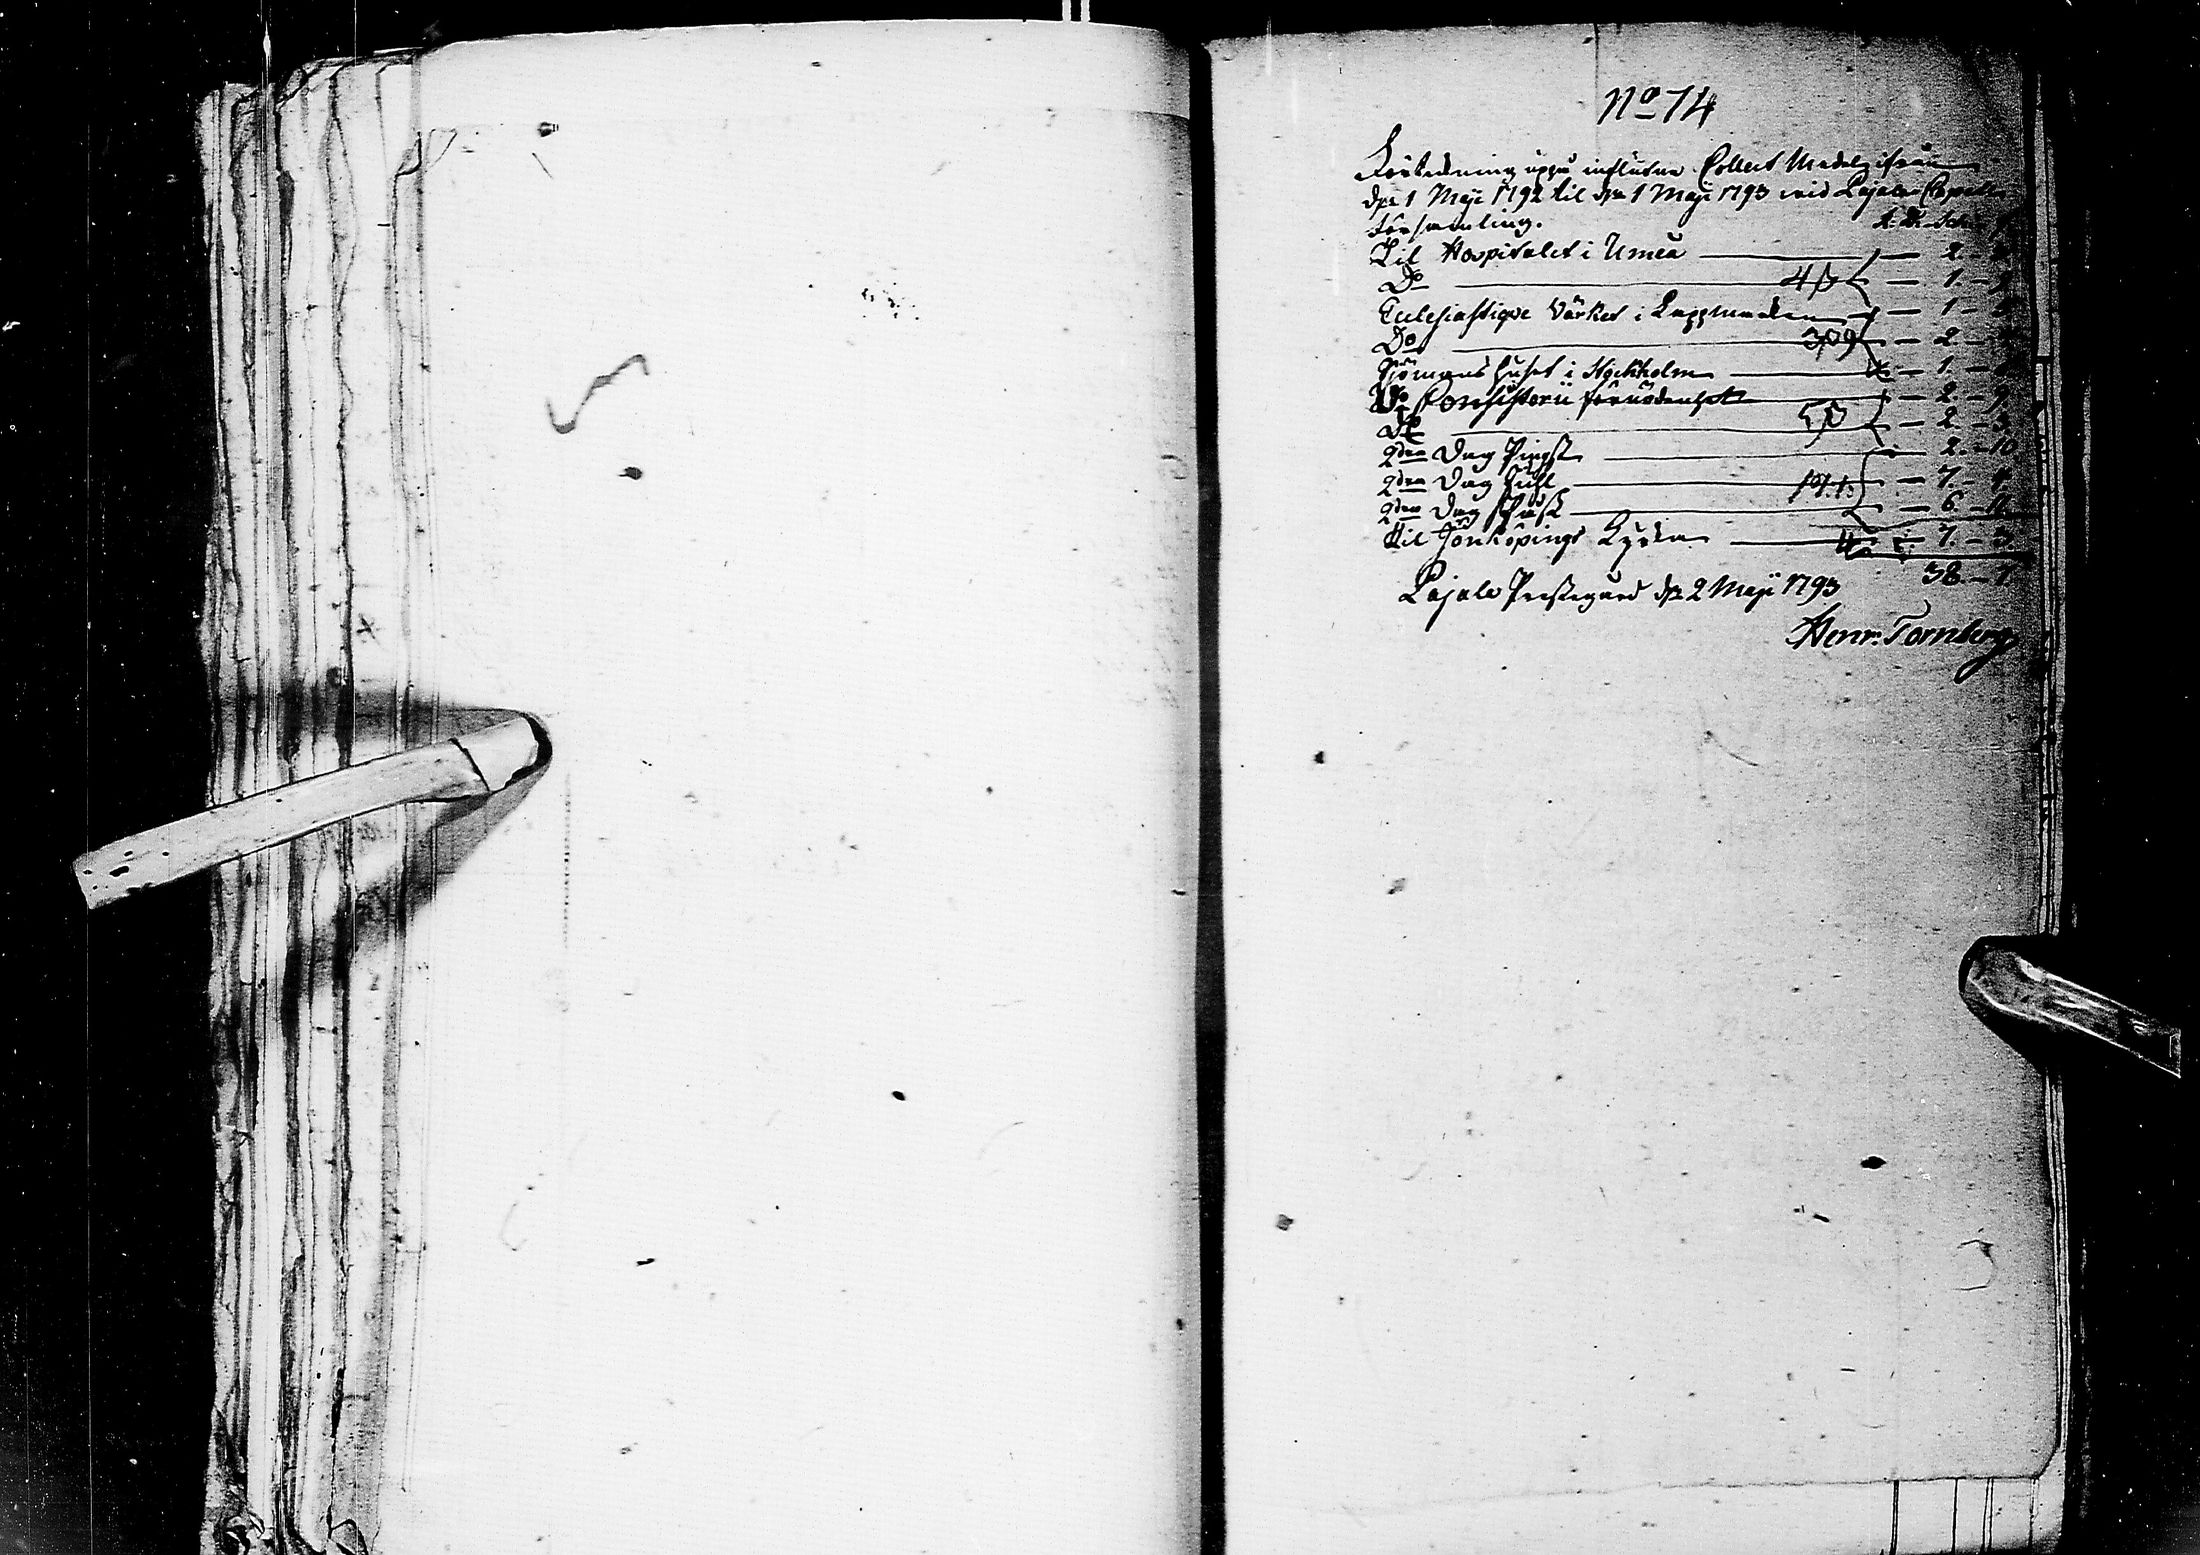 No 74
Förtekning uppå influtna Collect Medel ifrån
d. 1 Maji 1792 til d. 1 Maji 1793 vid Pajala Capells
församling.
Til Hospitalet i Umeå — 2.
Do — 4 — 1.
Ecclesiastique Värket i Lappmarken — 1
Do — 2
Sjömanshuset i Stockholm — 1.
Do Consistorii förnödenhet — 2 - 9
Do — 5 — 2 - 3
2dra Dag Pingst — 2. - 10
2dra Dag Juhl — 7. - 4
2dra Dag Påsk — 6 - 11
Til Jönköpings Kyrka — 7. - 3.
38. - 7
Pajala Prestegård d. 2 Maji 1793
Henr. Tornberg